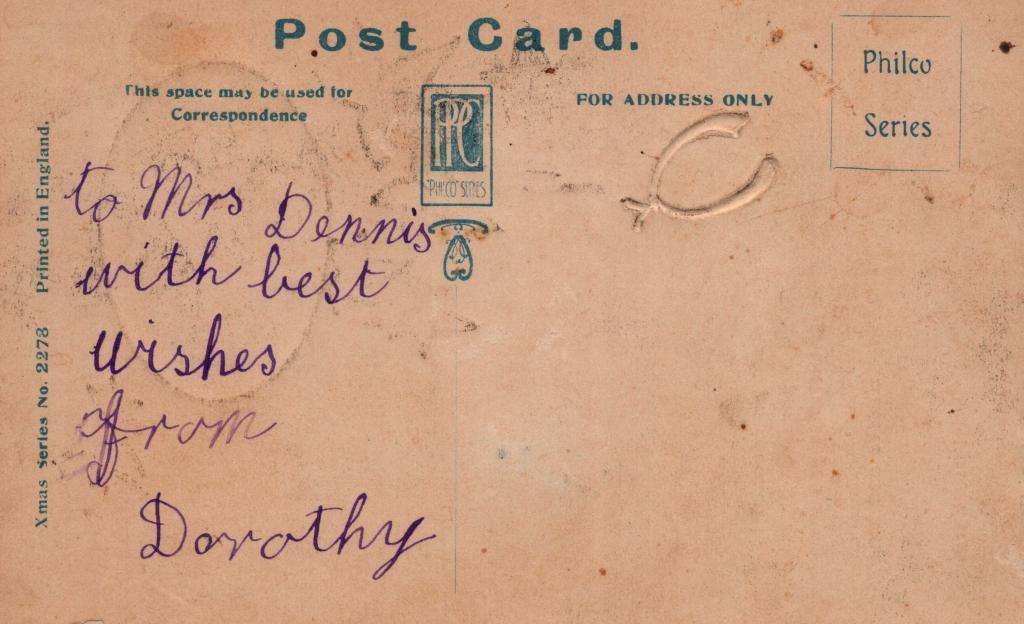 Post Card.
This space may be used for
Correspondence
FOR ADDRESS ONLY
Philco
Series
PPC
"PHILCO" SERIES
Xmas Series No. 2278 Printed in England.
to Mrs Dennis
with best
wishes
from
Dorothy